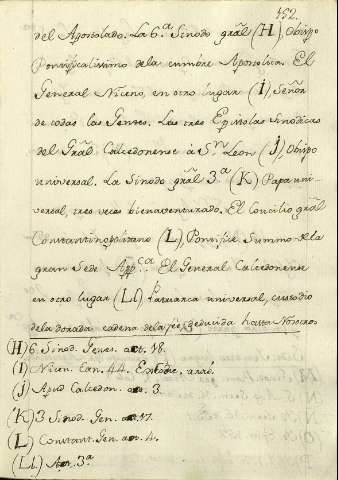 152.
del Apostolado. La 6.ª Sinodo grãl (H), Obispo
Pontificalissimo de la cumbre Apostolica. El
General Niceno, en otro lugar (I), Señor
de todas las Gentes. Las tres Epistolas Sinodicas
del Grãl Calcedonense à Sn. Leon (J), Obispo
universal. La Sinodo grãl 3.ª (K) Papa uni-
versal, tres veces bienaventurado. El Concilio grãl
Constantinopolitano (L), Pontifice Summo
gran Sede App.ca El General Calcedonense
en otro lugar (Ll) Patriarca universal, custodio
de la dorada cadena de la feé, deducida hasta Nosotros
(H) 6. Sinod. Gener. act. 18.
(I) Nicen. Can. 44.
(J) Apud Calcedon. act. 3.
(K) 3 Sinod. Gen. act. 17.
(L) Constant. Gen. act. 4.
(Ll) Act. 3.ª